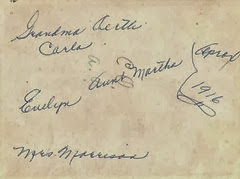 Grandma Oertli
Carla
Aunt Martha
Evelyn
Mrs Morrison
Aprox
1916